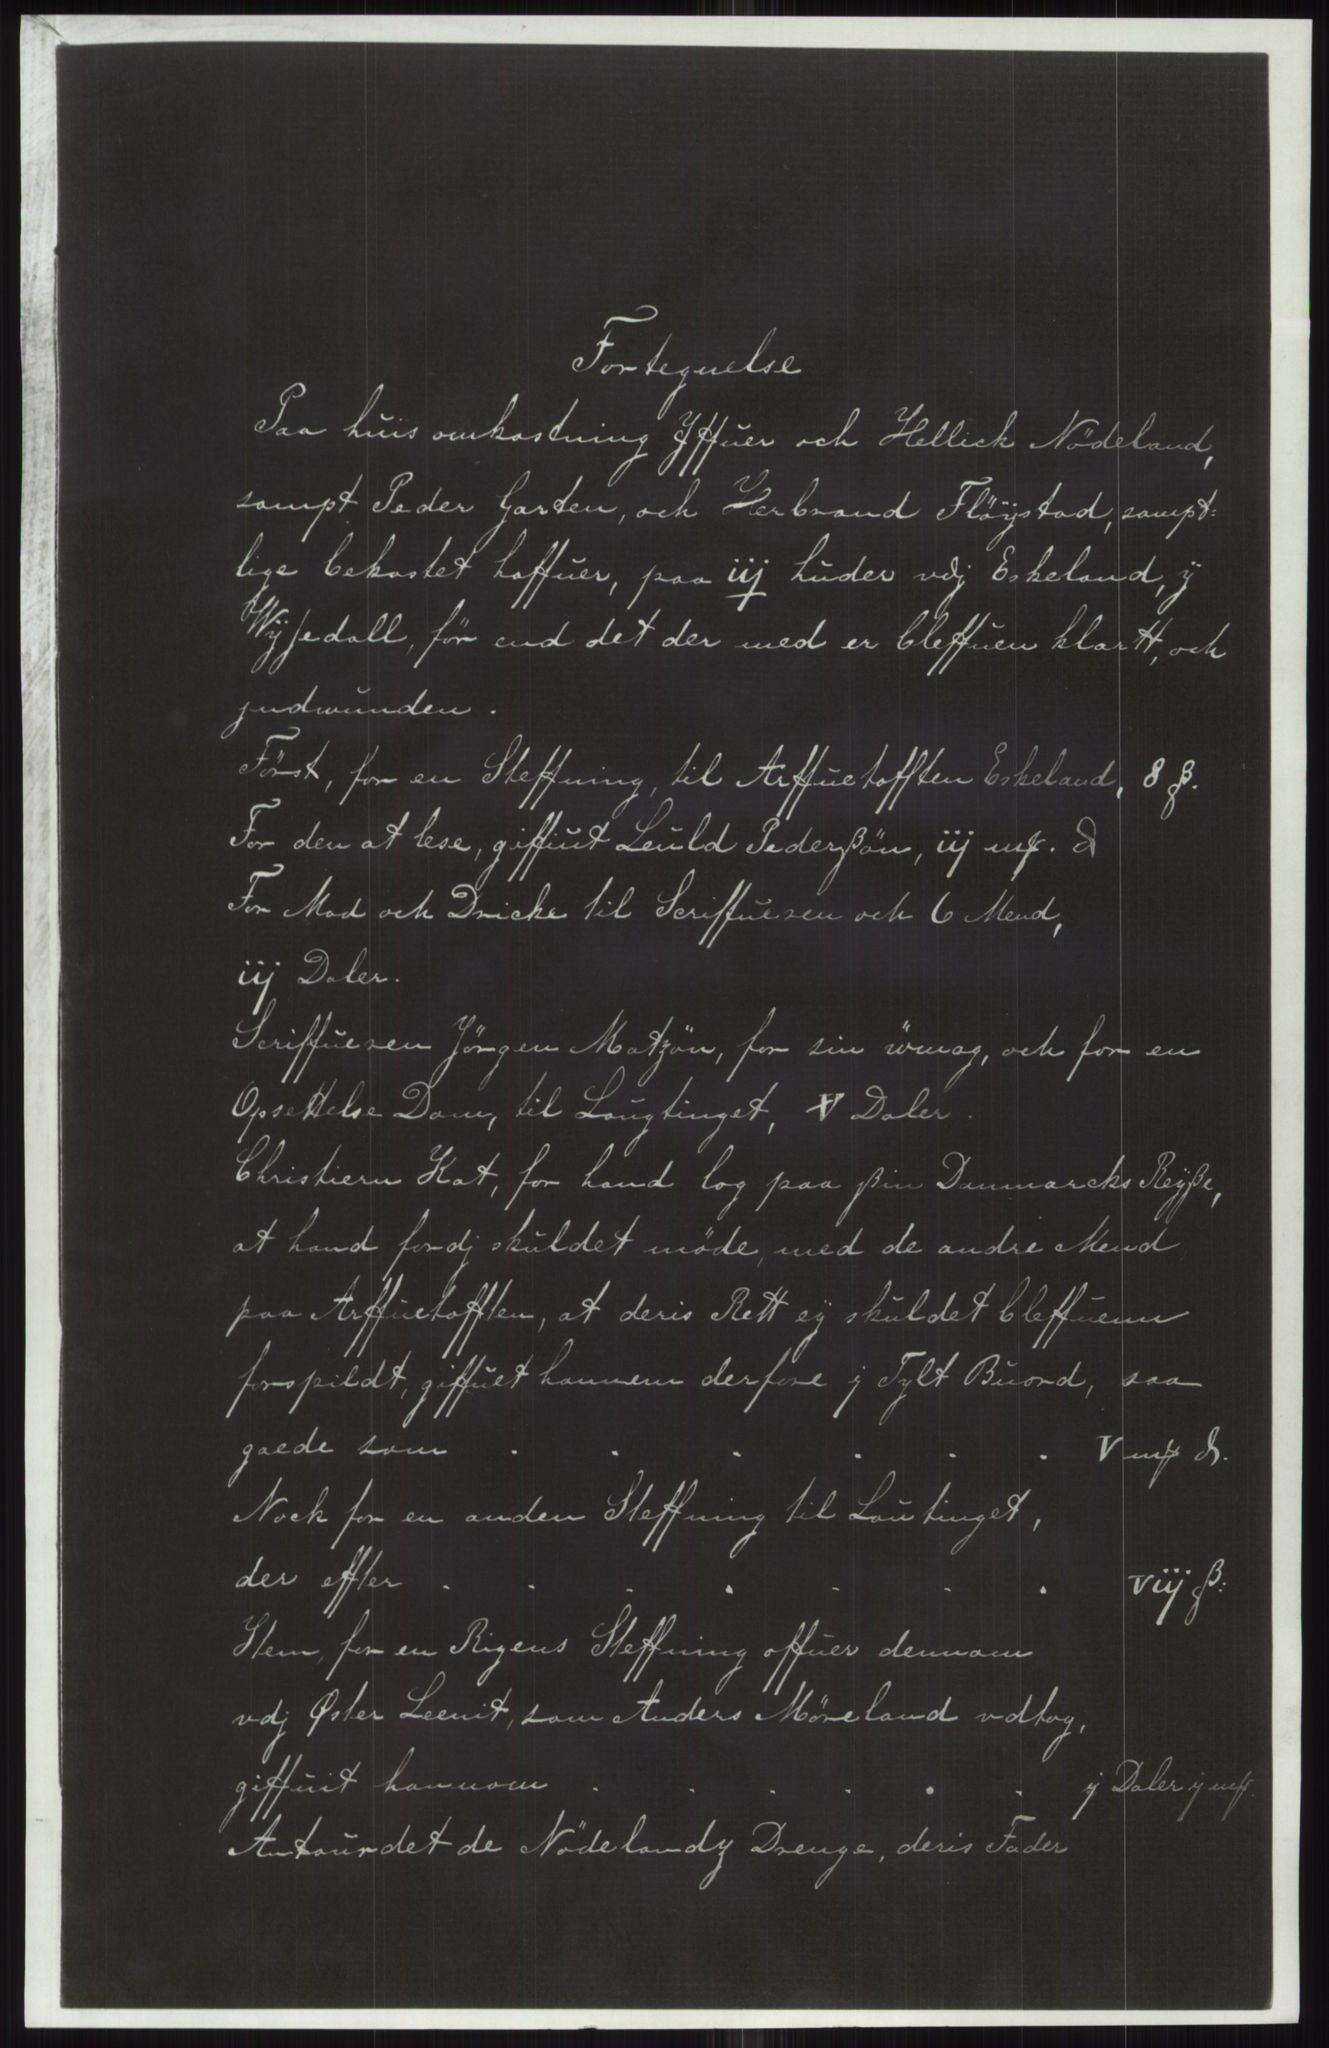 Fortegnelse
Paa huis omkostning Jffuer och Hellick Nödeland,
sampt Peder Garten, och Herbrand Flöÿstad, sampt:
lige bekostet haffuer, paa iij huder vdj Eskeland, ÿ
Wÿsedall, för end det der med er bleffuen klartt, och
jndwunden.
Först, for en Steffning, til Arffuetofften Eskeland, 8 ß.
For den at lese, giffuit Leuld Pederßön, iij mk. d
For Mad och Dricke til Scriffueren och 6 Mend,
iij Daler.
Scriffueren Jörgen Matzön, for sin wmag, och for en
Opsettelse Dom, til Laugtinget, V Daler.
Christiern Kat, for hand log paa ßin Danmarcks Reÿße,
at hand fordj skuldet möde, med de andre Mend
paa Arffuetofften, at deris Rett eÿ skuldet bleffuenn
forspildt, giffuet hannem derfore j Tylt Buord, saa
goede som . . . . . . V mk d.
Nock for en anden Steffning til Lautinget,
der effter . . . . . . . viij ß:
Item, for en Rigens Steffning offuer dennom
vdj Øster Leenit, som Anders Möreland vdtog,
giffuit hannom . . . . . . ij Daler ij mk.
Antourdet de Nödelandz Drenge, deris Fader